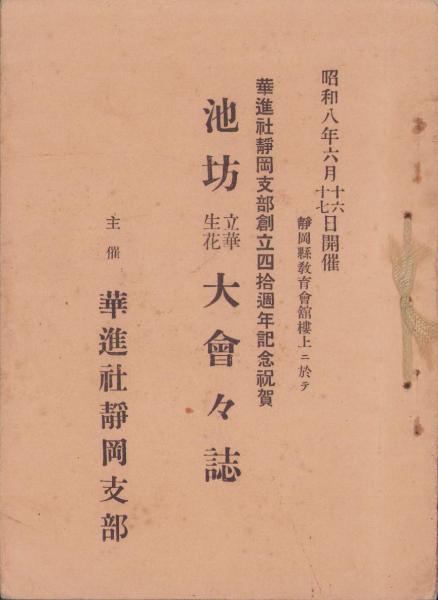 昭和八年六月十六十七日開催
靜岡縣教育會館樓上ニ於テ
華進社靜岡支部創立四拾週年記念祝賀
池坊立華生花大會々誌
主催
華進社靜岡支部